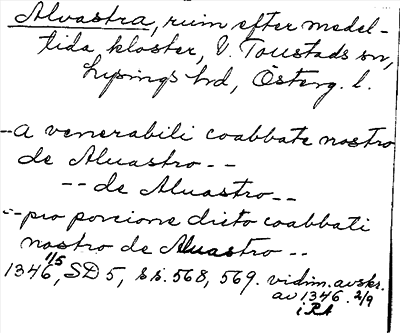 Alvastra, ruin efter medel-
tida kloster, V. Toustads sn,
Lysings hd, Österg. l.
--a venerabili coabbate nostro
de Aluastro--
--de Aluastro--
--pro porcione dicto coabbati
nostro de Aluastro--
1346 11/5, SD 5, ss. 568, 569. vidim. avskr.
av 1346 2/9
i RA